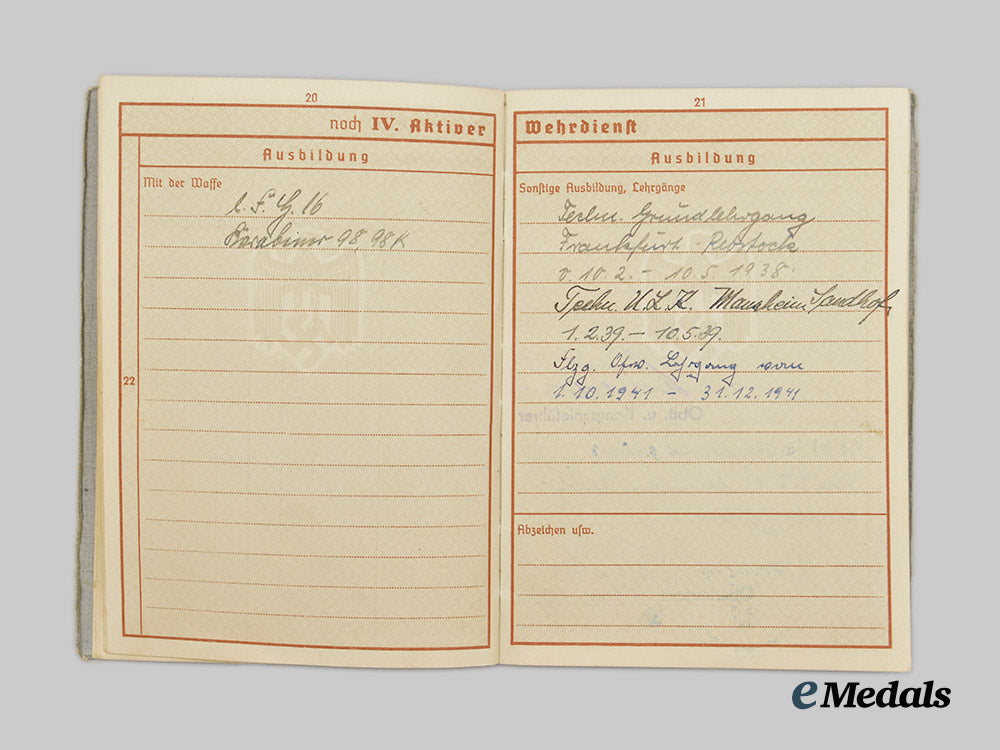 20
noch IV. Aktiver
Ausbildung
Mit der Waffe
l. F. H. 16
Karabiner 98, 98K
22
21
Wehrdienst
Ausbildung
Sonstige Ausbildung, Lehrgänge
Techn. Grundlehrgang
Frankfurt - Rebstock
v. 10.2. - 10.5. 1938.
Techn. U.L.K. Mannheim Sandhof.
1.2.39. - 10.5.39.
Flzg. Ofw. Lehrgang vom
1.10.1941 - 31.12.1941
Abzeichen usw.
eMedals